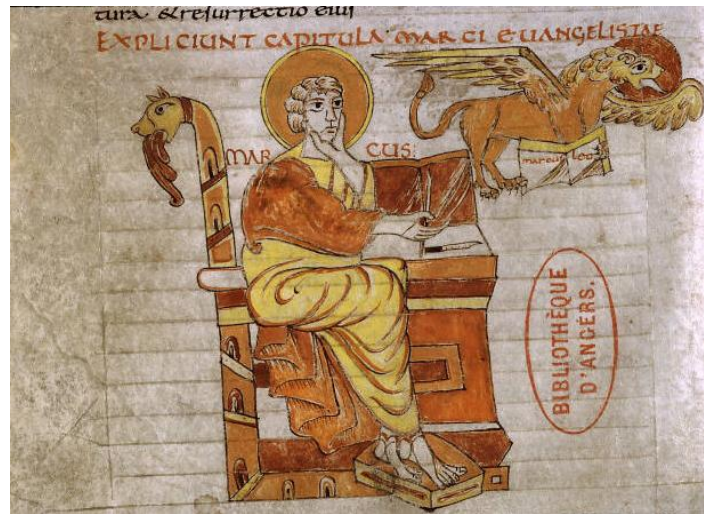 tura. & resurrectio eius
EXPLICIUNT CAPITULA MARCI EUANGELISTAE
MAR CUS:
marcus leo
BIBLIOTHÈQUE
D'ANGERS.